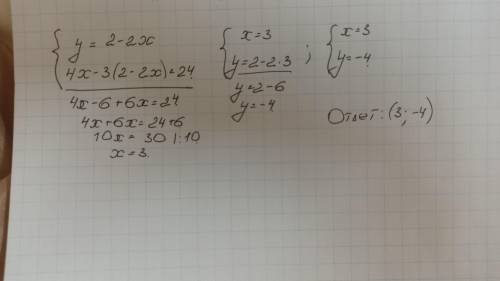 y = 2-2x
4x-3(2-2x)=24
4x-6+6x=24
4x+6x=24+6
10x = 30 |:10
x=3.
x=3
y=2-2·3 ;
y=2-6
y=-4
x=3
y=-4.
Ответ: (3; -4)